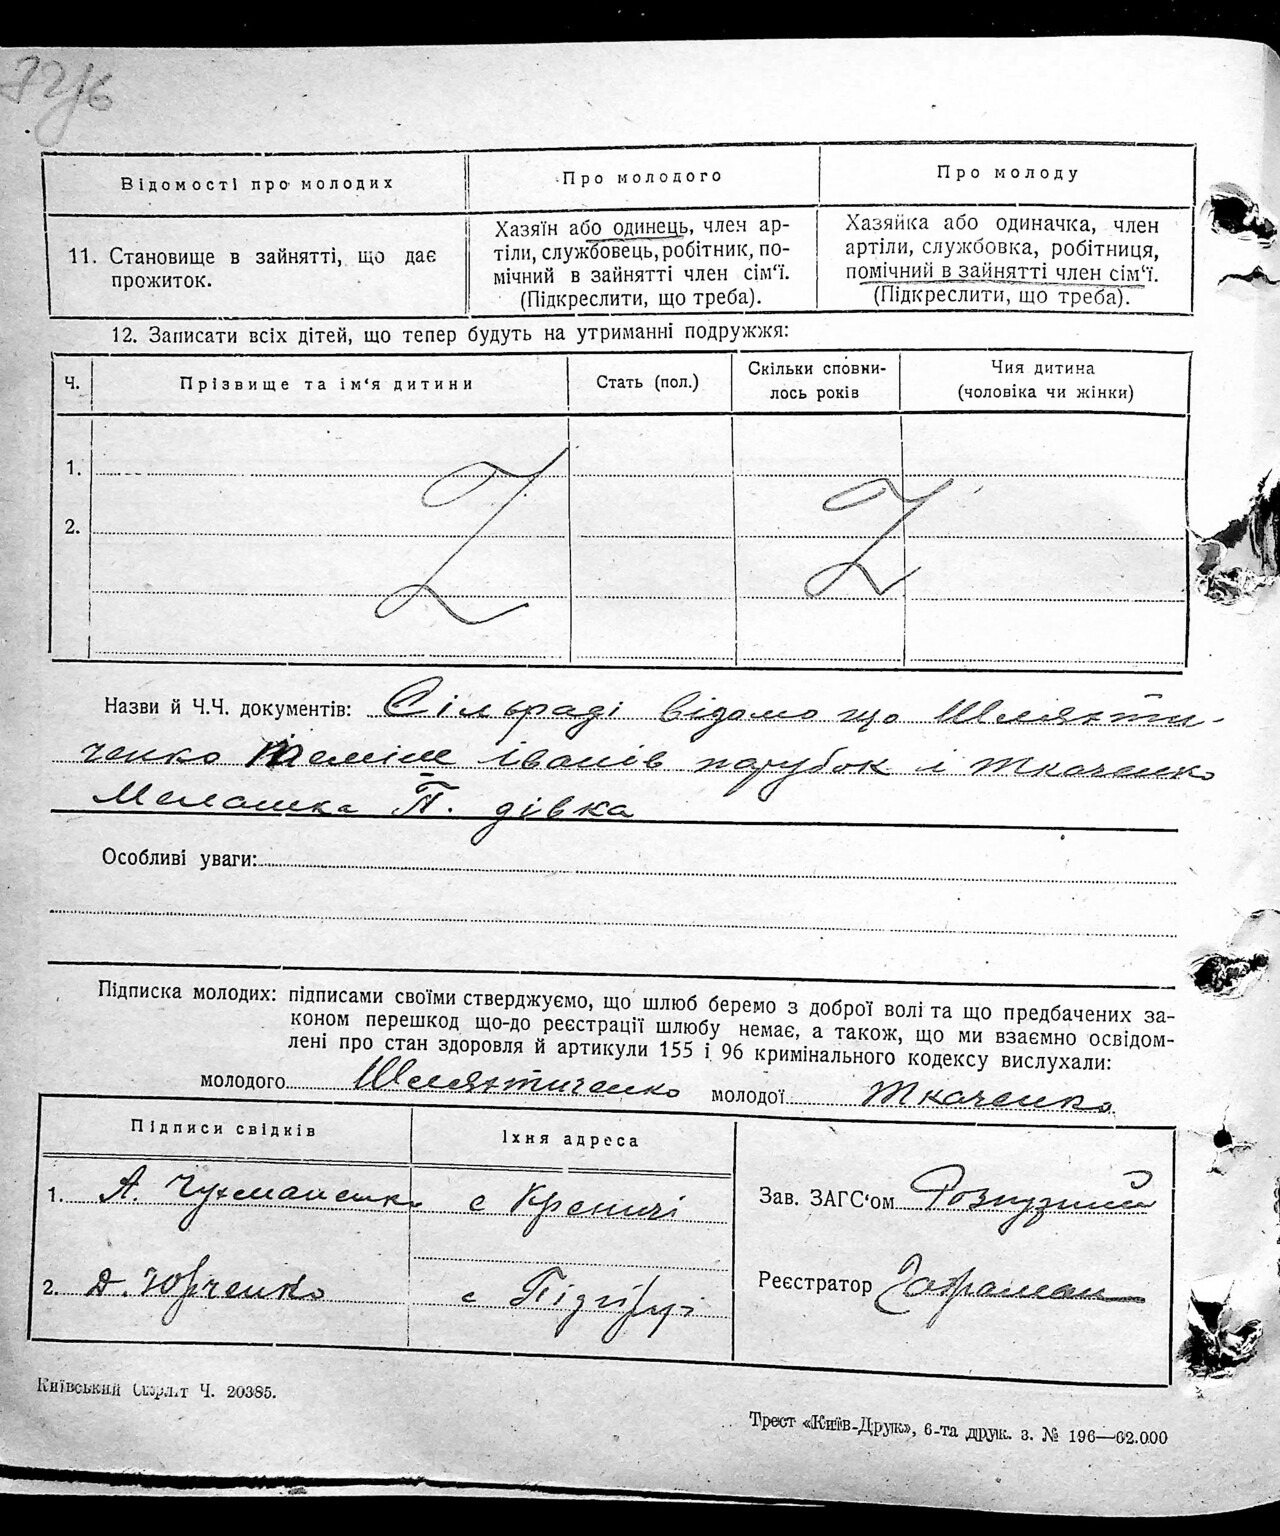 Відомості про молодих Про молодого Про молоду
11. Становище в зайнятті, що дає прожиток.
Хазяїн або одинець, член ар-
тіли, службовець, робітник, по-
мічний в зайнятті член сім'ї.
(Підкреслити, що треба).
Хазяйка або одиначка, член
артіли, службовка, робітниця,
помічний в зайнятті член сім'ї.
(Підкреслити, що треба).
12. Записати всіх дітей, що тепер будуть на утриманні подружжя:
Ч. Прізвище та ім'я дитини Стать (пол.) Скільки сповни-лось років Чия дитина (чоловіка чи жінки)
1.
2.
Назви й Ч.Ч. документів: Сільраді відомо що Шляхти-
ченко Іванів парубок і Ткаченко
Мелашка П. дівка
Особливі уваги:
Підписка молодих: підписами своїми стверджуємо, що шлюб беремо з доброї волі та що предбачених за-
коном перешкод що-до реєстрації шлюбу немає, а також, що ми взаємно освідом-
лені про стан здоровля й артикули 155 і 96 кримінального кодексу вислухали:
молодого Шляхтиченко молодої Ткаченко
Підписи свідків Їхня адреса
1. А. Чухманенко с Креничі
2. Д. Юрченко с Підгірці
Зав. ЗАГС'ом
Реєстратор
Київський Окрліт Ч. 20385.
Трест «Київ-Друк», 6-та друк. з. № 196—62.000